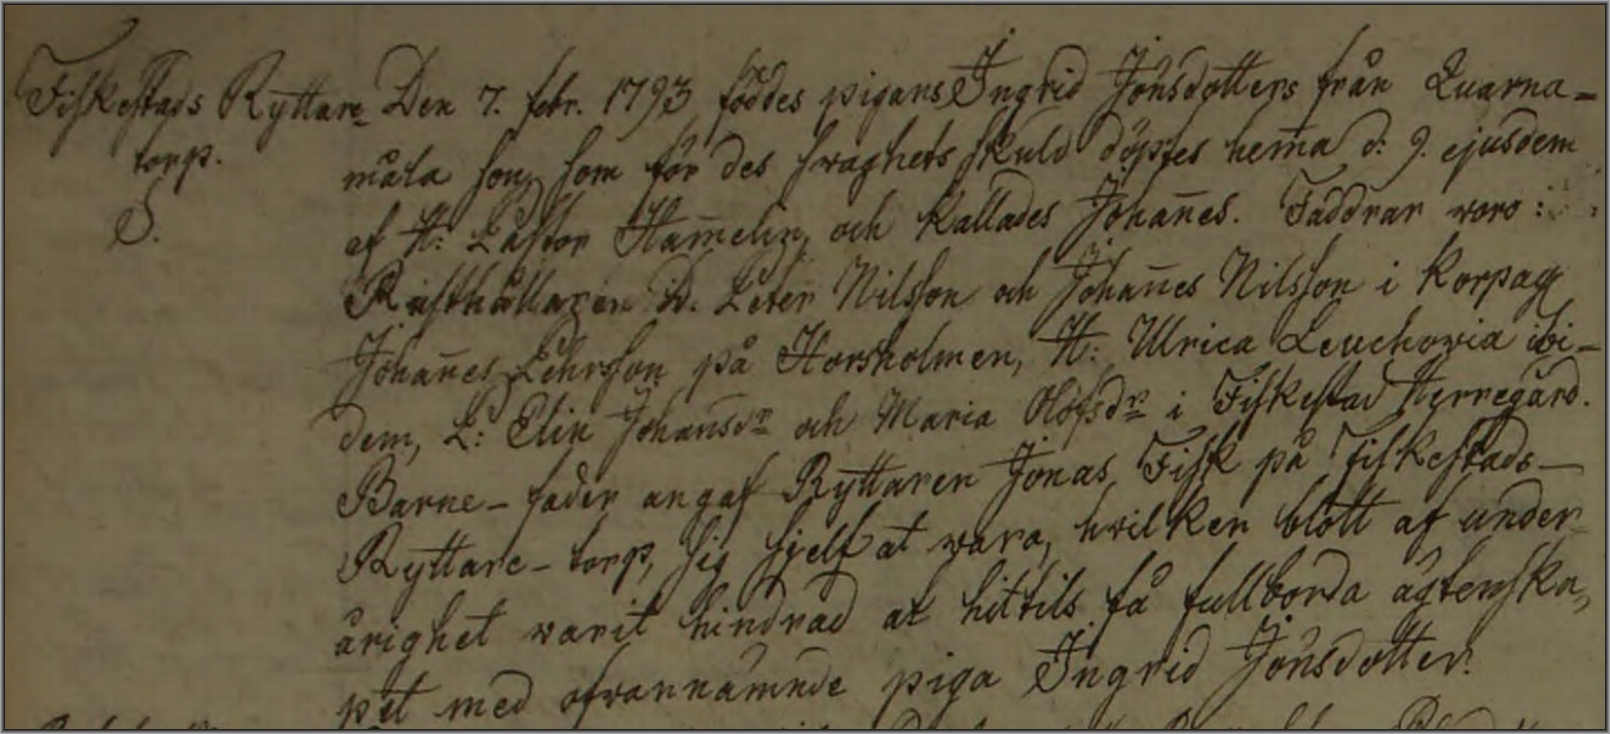 Fiskestads Ryttare Den 7. febr. 1793 föddes pigans Ingrid Jönsdotters från Quarna-
torp. måla son, som för des swaghets skuld döptes hem̄a d: 9. ejusdem
S. af H: Pastor Ham̄elin, och kallades Johan̄es. Faddrar woro:
Rusthållaren D. Peter Nilsson och Johan̄es Nilsson i Korpag
Johan̄es Pehrsson på Horsholmen, H: Ulrica Leuchowia ibi-
dem, P: Elin Johansdr och Maria Olofsdr i Fiskestad Herregård.
Barne-fader angaf Ryttaren Jonas Fisk på Fiskestads-
Ryttare-torp, sig sjelf at wara, hwilken blott af under-
årighet warit hindrad at hittils få fullborda ägtenska,
pet med ofwannämnde piga Ingrid Jönsdotter.